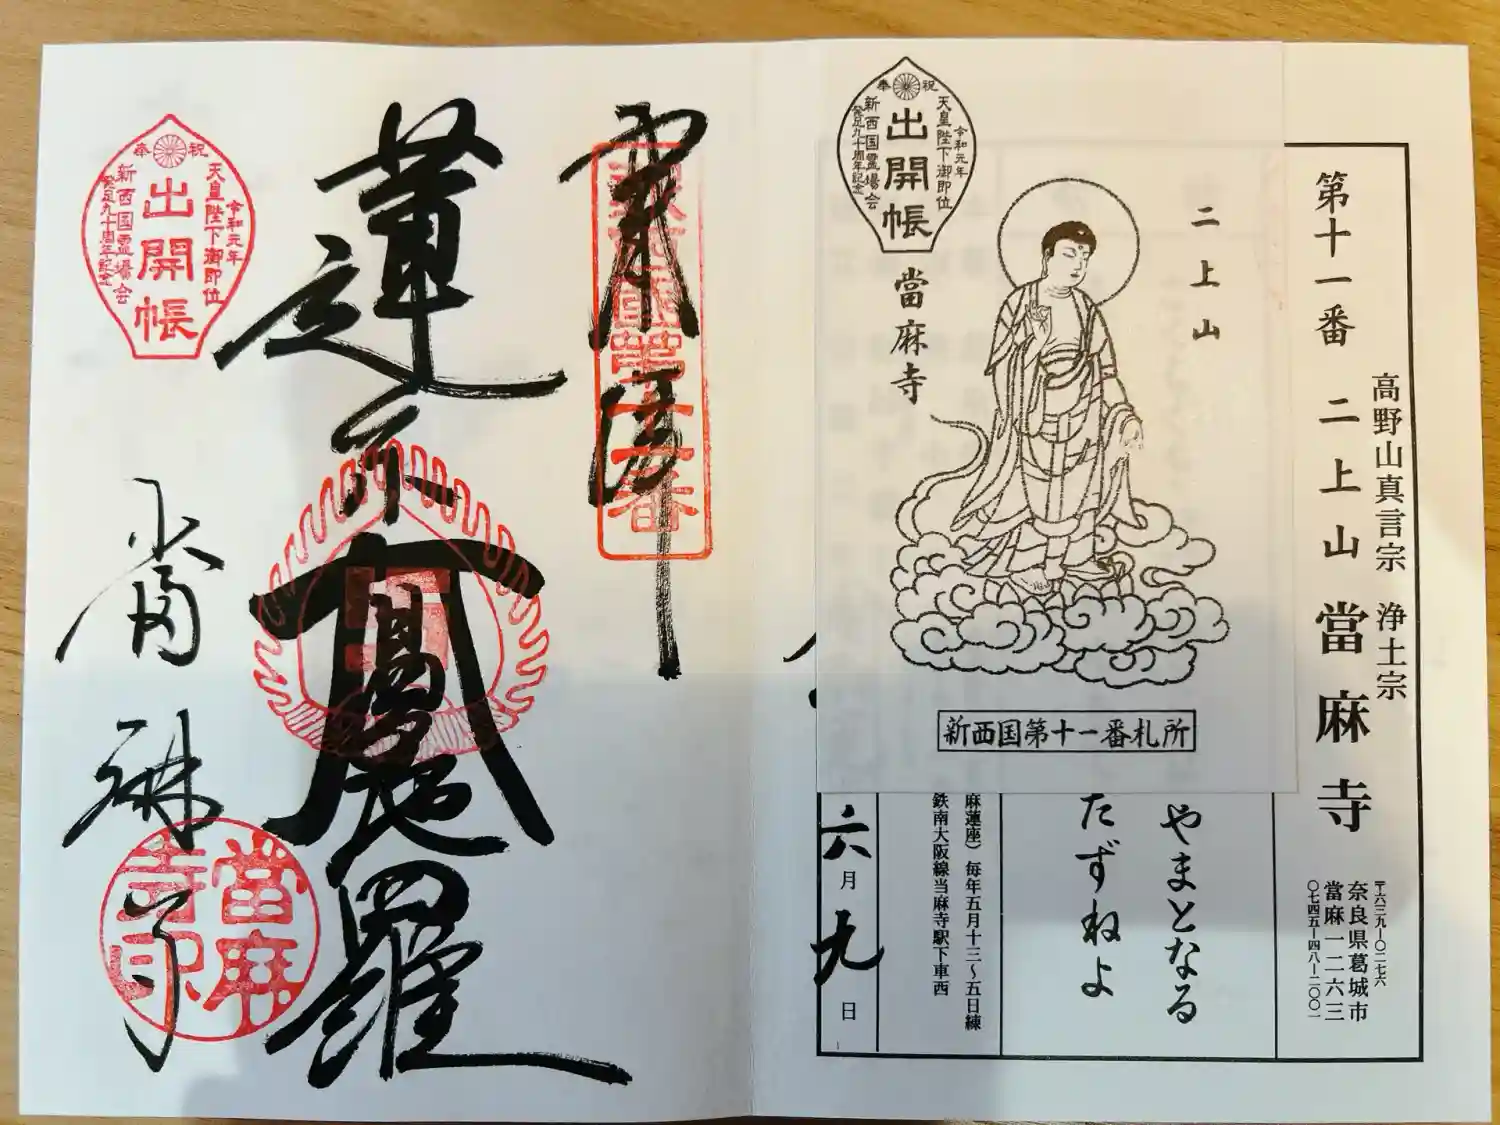 第十一番 二上山 當麻寺
高野山真言宗 浄土宗
〒六三九-〇二七六
奈良県葛城市
當麻一二六三
〇七四五-四八-二〇〇一
二上山
當麻寺
祝
奉
令和元年
天皇陛下御即位
出開帳
新西国霊場会
発足九十周年記念
新西国第十一番札所
やまとなる
たずねよ
麻蓮座）毎年五月十三〜五日練
鉄南大阪線当麻寺駅下車西
六月九日
奉拝
新西国第十一番
蓮糸大曼荼羅
當麻寺
當麻寺印
祝
奉
令和元年
天皇陛下御即位
出開帳
新西国霊場会
発足九十周年記念